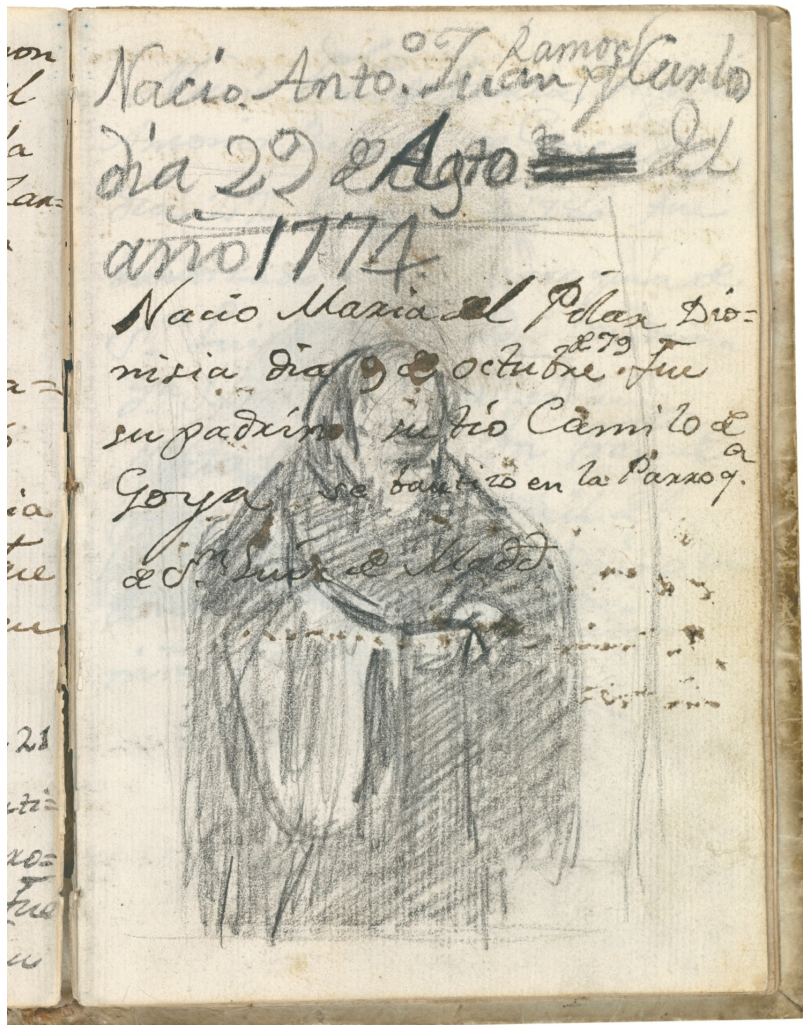 on
el
la
Zar=
Nacio. Anto.º Juan Ramon y Carlo
dia 29 de Agto. del
año 1774
Nacio Maria del Pilar Dio=
nisia dia 9 de octubre de 79. fue
su padrino su tio Camilo de
Goya se bautizo en la Parroq.ª
de S.n Luis de Madd.
a=
ia
fue
su
21
uti=
ro=
Fue
su